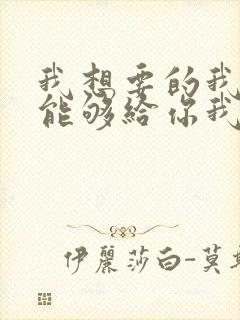 我想要的我
能够給你我
伊麗莎白-莫